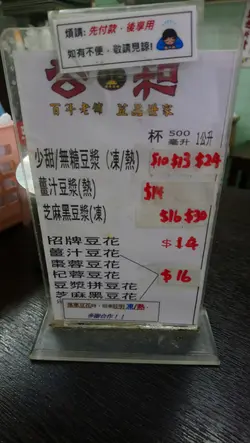 煩請：先付款，後享用
如有不便，敬請見諒！
公和
百年老舖 豆品世家
杯 500毫升 1公升
少甜/無糖豆漿 (凍/熱) $10 $13 $24
薑汁豆漿(熱) $14
芝麻黑豆漿(凍) $16 $30
招牌豆花 $14
薑汁豆花
棗蓉豆花
杞蓉豆花 $16
豆漿拼豆花
芝麻黑豆花
凍/熱
多謝合作！！